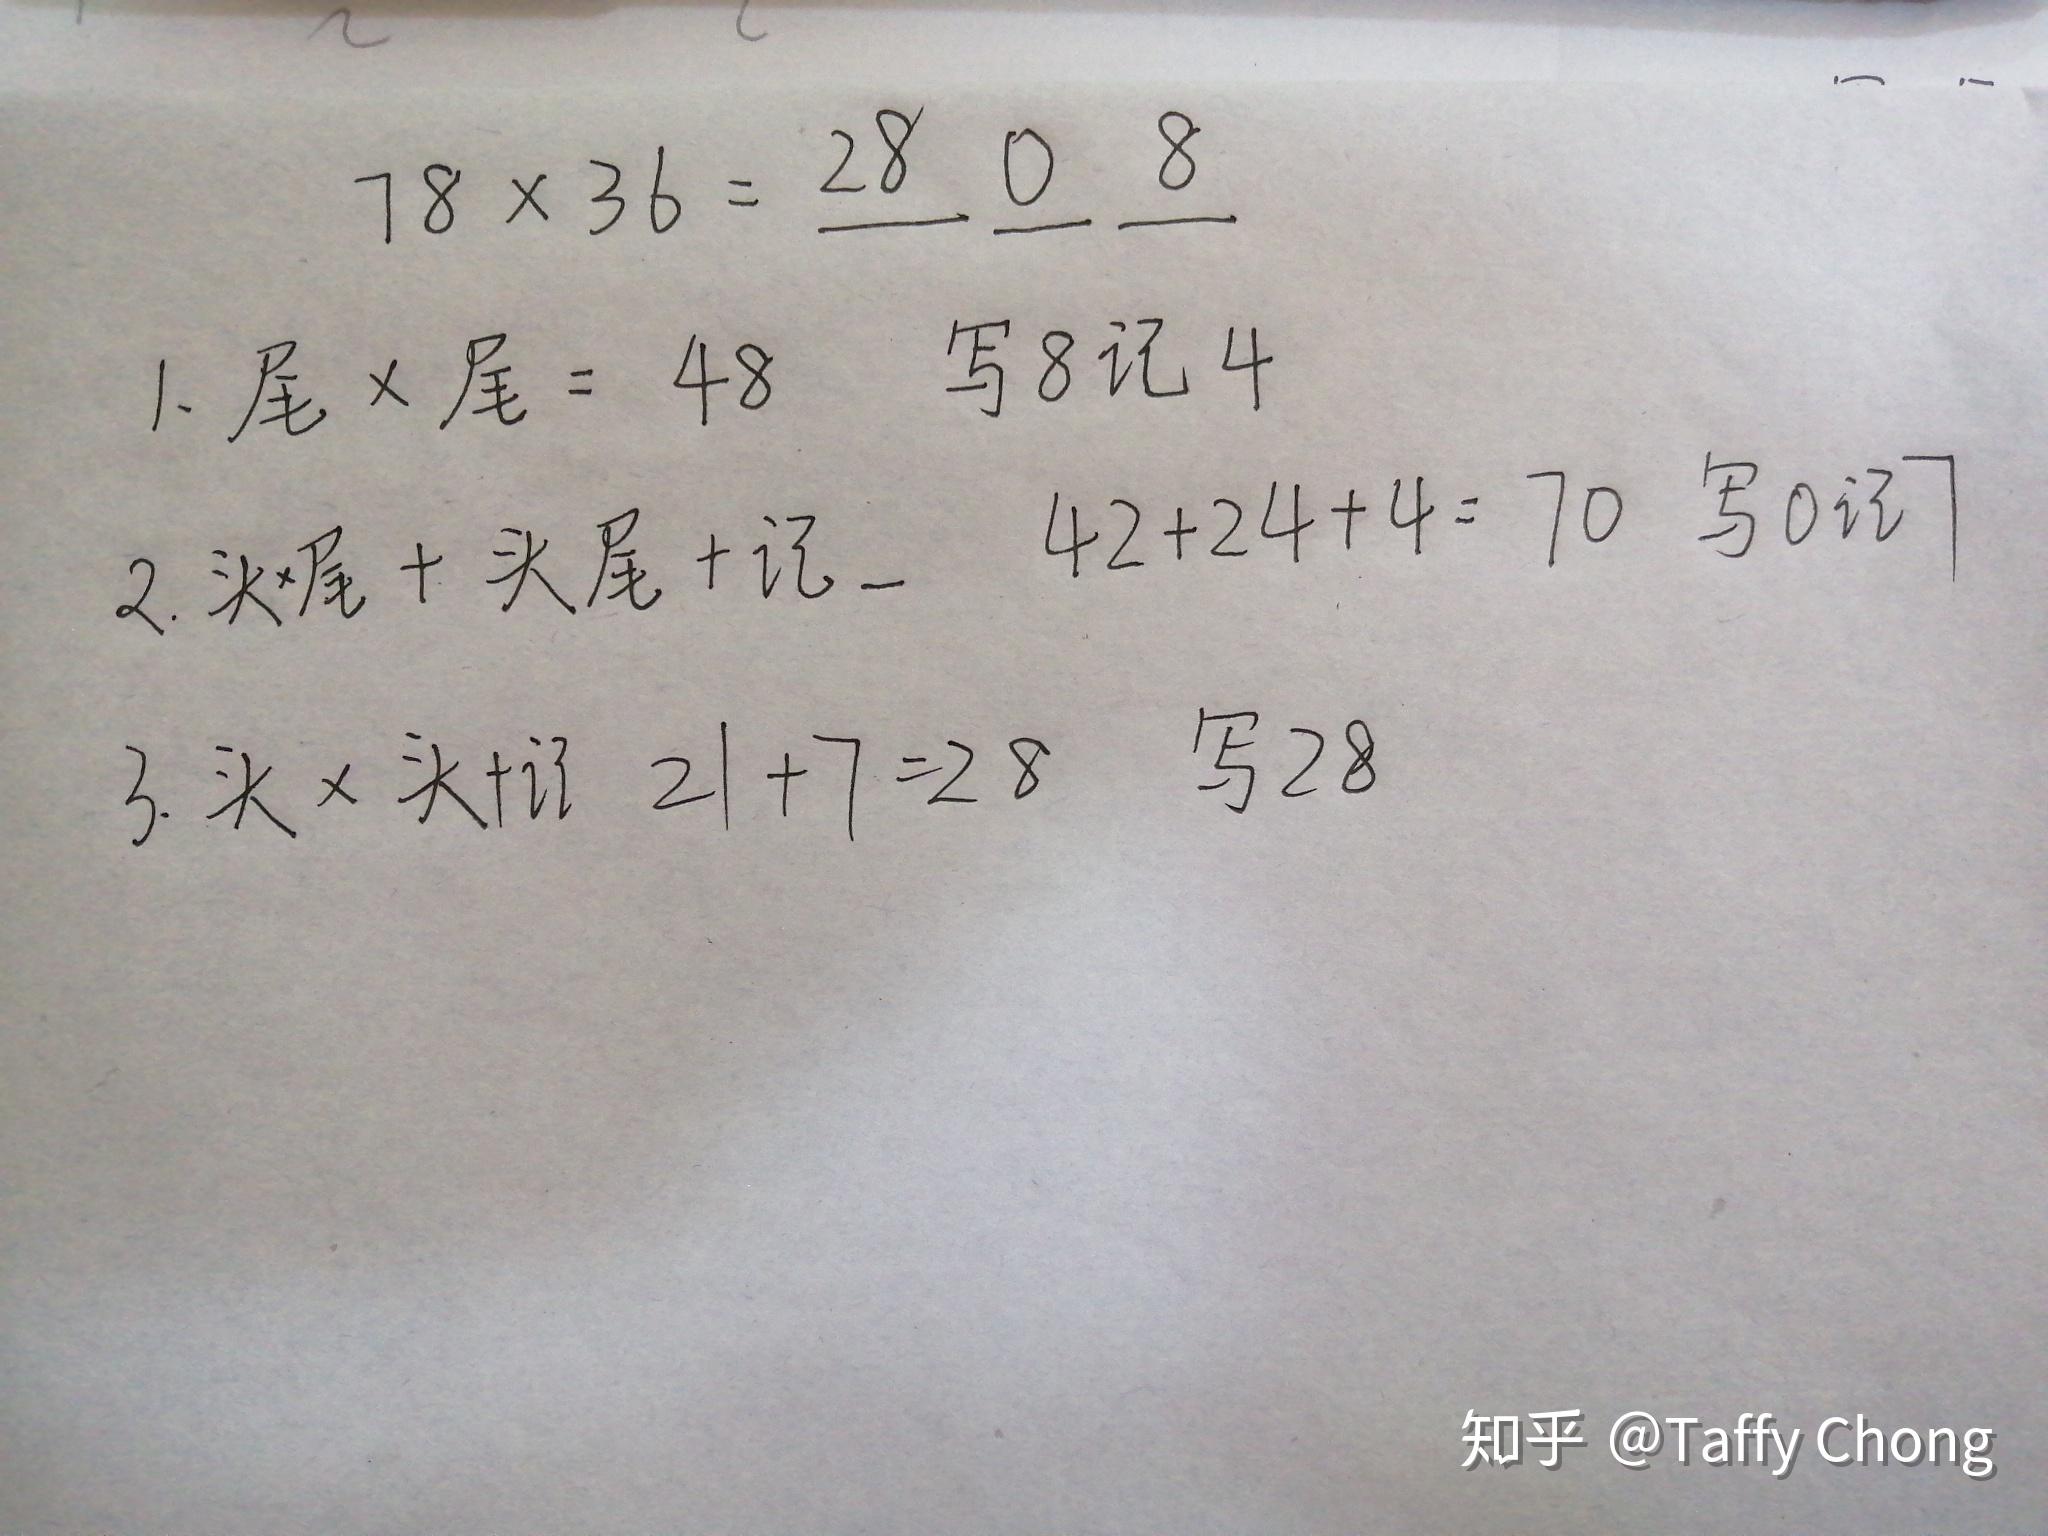 78 × 36 = 28 0 8
1. 尾 × 尾 = 48 写8记4
2. 头×尾 + 头尾 + 记_ 42+24+4= 70 写0记7
3. 头 × 头+记 21+7=28 写28
知乎 @Taffy Chong